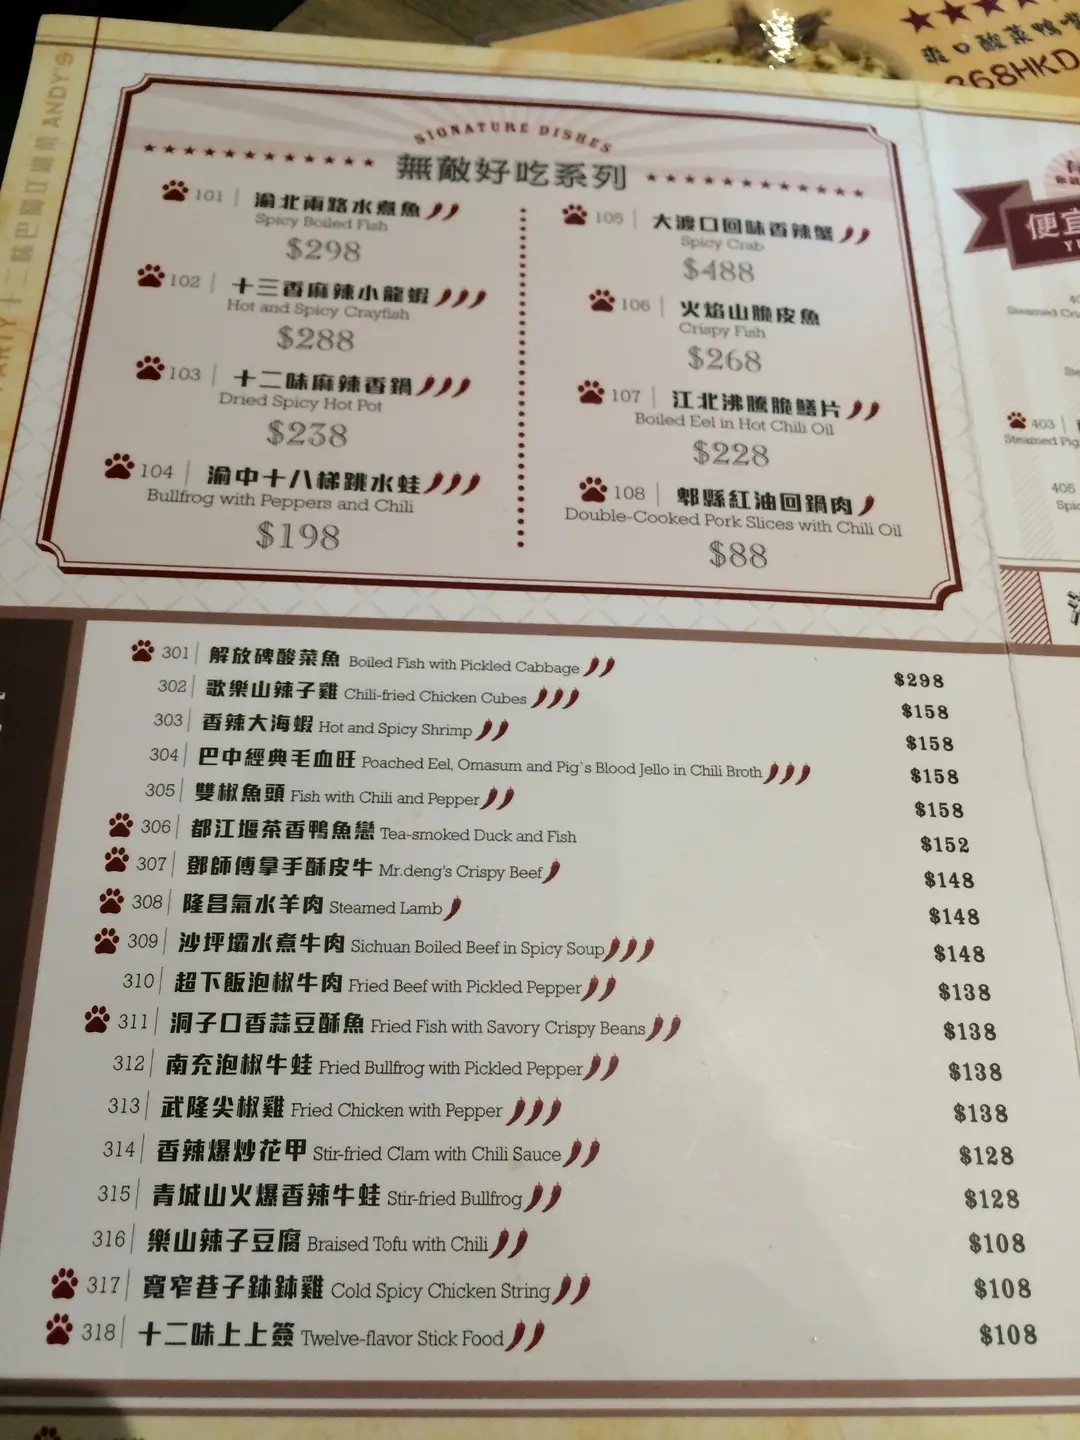 爽口酸菜鴨
368HKD
ANDY'S
PARTY 十二味巴蜀江湖菜
SIGNATURE DISHES
無敵好吃系列
101 渝北兩路水煮魚
Spicy Boiled Fish
$298
102 十三香麻辣小龍蝦
Hot and Spicy Crayfish
$288
103 十二味麻辣香鍋
Dried Spicy Hot Pot
$238
104 渝中十八梯跳水蛙
Bullfrog with Peppers and Chili
$198
105 大渡口回味香辣蟹
Spicy Crab
$488
106 火焰山脆皮魚
Crispy Fish
$268
107 江北沸騰脆鱔片
Boiled Eel in Hot Chili Oil
$228
108 郫縣紅油回鍋肉
Double-Cooked Pork Slices with Chili Oil
$88
便宜
403
Steamed Pig
405
301 解放碑酸菜魚 Boiled Fish with Pickled Cabbage $298
302 歌樂山辣子雞 Chili-fried Chicken Cubes $158
303 香辣大海蝦 Hot and Spicy Shrimp $158
304 巴中經典毛血旺 Poached Eel, Omasum and Pig`s Blood Jello in Chili Broth $158
305 雙椒魚頭 Fish with Chili and Pepper $158
306 都江堰茶香鴨魚戀 Tea-smoked Duck and Fish $152
307 鄧師傅拿手酥皮牛 Mr.deng's Crispy Beef $148
308 隆昌氣水羊肉 Steamed Lamb $148
309 沙坪壩水煮牛肉 Sichuan Boiled Beef in Spicy Soup $148
310 超下飯泡椒牛肉 Fried Beef with Pickled Pepper $138
311 洞子口香蒜豆酥魚 Fried Fish with Savory Crispy Beans $138
312 南充泡椒牛蛙 Fried Bullfrog with Pickled Pepper $138
313 武隆尖椒雞 Fried Chicken with Pepper $138
314 香辣爆炒花甲 Stir-fried Clam with Chili Sauce $128
315 青城山火爆香辣牛蛙 Stir-fried Bullfrog $128
316 樂山辣子豆腐 Braised Tofu with Chili $108
317 寬窄巷子缽缽雞 Cold Spicy Chicken String $108
318 十二味上上簽 Twelve-flavor Stick Food $108